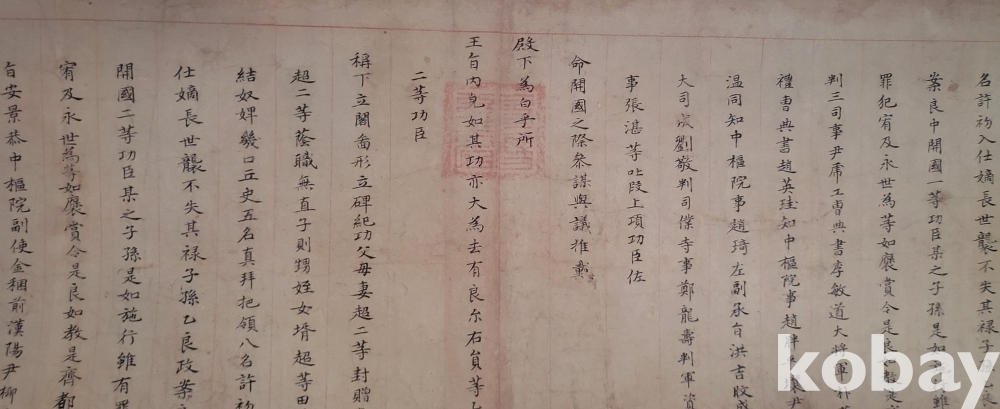 名許初入仕嫡長世襲不失其禄子
案良中開國一等功臣某之子孫是如
罪犯宥及永世為等如褒賞令是良如教是
判三司事尹虎工曹典書李敏道大將軍朴
禮曹典書趙英珪知中樞院事趙胖
温同知中樞院事趙琦左副承旨洪吉旼成
大司成劉敬判司僕寺事鄭龍壽判軍資
事張湛等叱段上項功臣佐
命開國之際參謀與議推戴
殿下為白乎所
王旨内皃如其功亦大為去有良尔右員等乙
二等功臣
稱下立閣啚形立碑紀功父母妻超二等封贈
超二等蔭職無直子則甥姪女壻超等田
結奴婢幾口丘史五名真拜把領八名許初
仕嫡長世襲不失其禄子孫乙良政案
開國二等功臣某之子孫是如施行雖有罪
宥及永世為等如褒賞令是良如教是齊都
旨安景恭中樞院副使金稇前漢陽尹柳
kobay